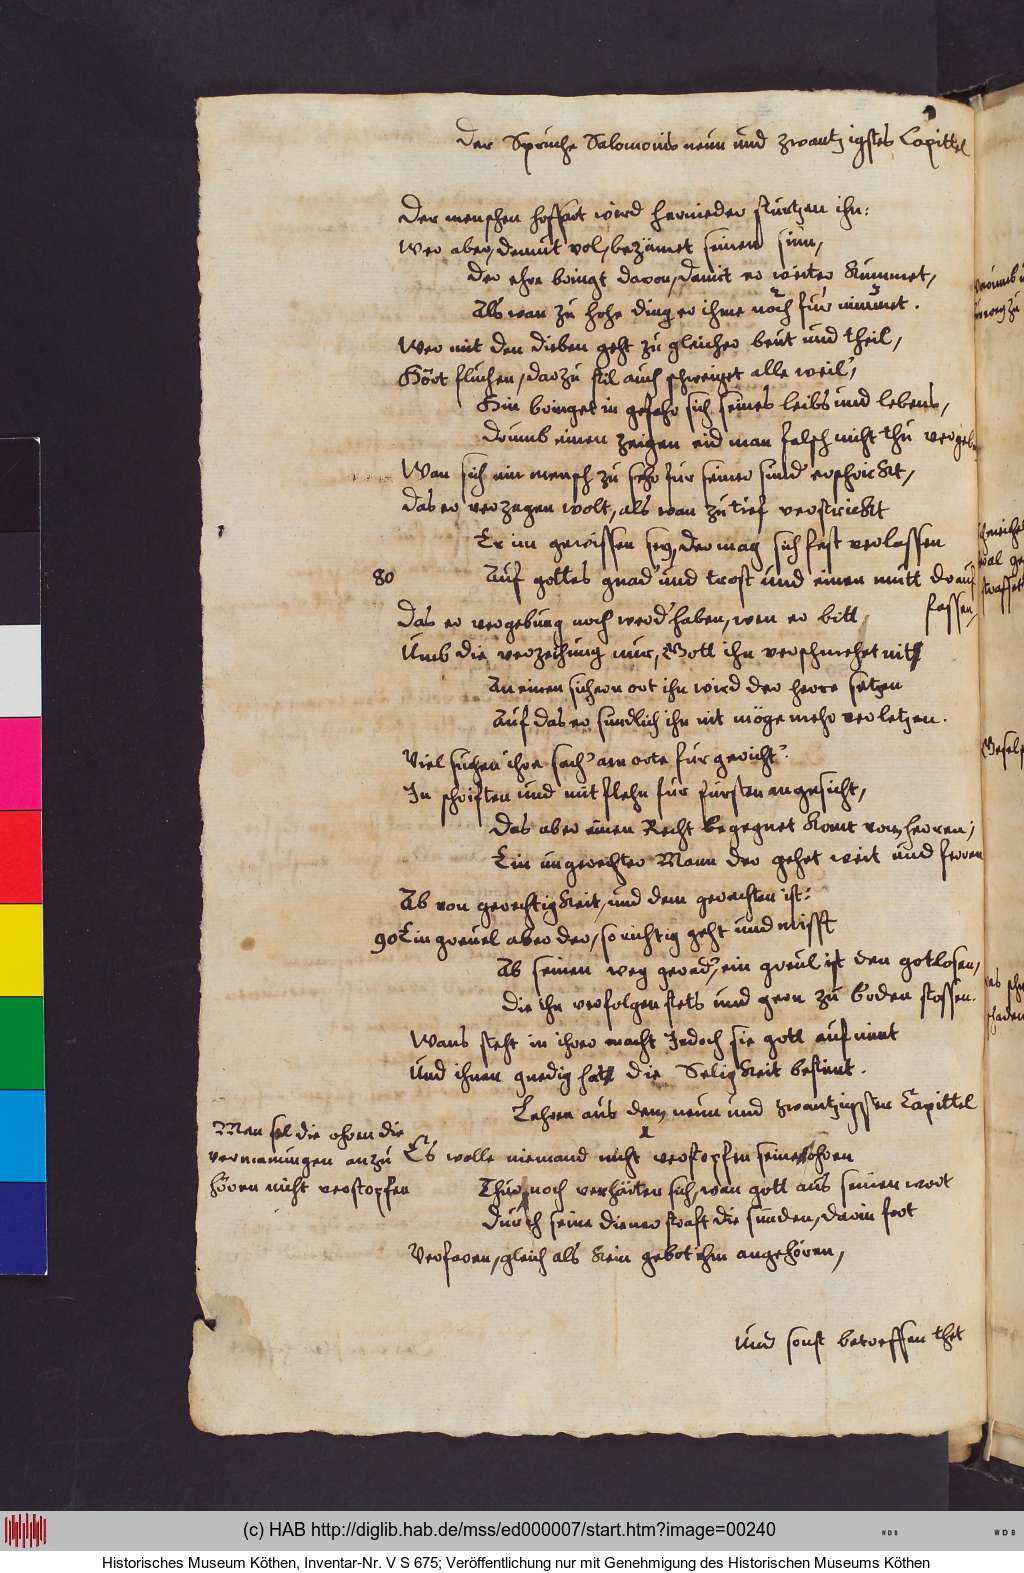 Der Spruche Salomonis neun und zwantzigstes Capittel
Der menschen hoffart wird hernieder sturtzen ihn:
Wer aber, demut vol, bezämet seinen sinn,
Der ehre bringt davon, damit er weiter kummet,
Als wan zu hohe ding er ihme noch für nimmet.
Wer mit den dieben geht zu gleicher beut und theil,
Hört fluchen, darzu stil auch schweiget alle weil,
Hin bringet in gefahr sich seines leibs und lebens,
Drumb einen zeigen eid man falsch nicht thu vergebens
Wan sich ein mensch zu sehr fur seiner sund' erschrickt,
Das er verzagen wolt, als wan zu tief verstrickt
Er im gewissen sey, der mag sich fest verlassen
80 Auf gottes gnad' und trost und einen mutt drauf
fassen,
Das er vergebung noch werd' haben, wen er bitt
Umb die verzeihung nur, Gott ihn verschmehet nit
An einen sichern ort ihn wird der herre setzen
Auf das er sundlich ihn nit möge mehr verletzen.
Viel suchen ihre sach' am orte fur gericht'
In schriften und mit flehn fur fursten angesicht,
Das aber einen Recht begegnet komt vom herren;
Ein ungerechter Mann der gehet weit und ferren
Ab von gerechtigkeit, und dem gerechten ist:
90 Ein greuel aber der, so richtig geht und misst
Ab seinen weg gerad', ein greul ist den gotlosen,
Die ihn verfolgen stets und gern zu boden stossen.
Wans steht in ihrer macht Jedoch sie gott aufnimt
Und ihnen gnedig hatt die Seligkeit bestimt.
Lehren aus dem neun und zwantzigsten Capittel
1
Man sol die ohren die
vermanungen anzu
hören nicht verstopfen
Es wolle niemand nicht verstopfen seine ohren
Thur noch verhärten sich, wan gott aus seinen wort
Durch seine diener straft die sunden, darin fort
Verfaren, gleich als kein gebot ihm angehören,
Und sonst betreffen thet
(c) HAB http://diglib.hab.de/mss/ed000007/start.htm?image=00240
WDB
WDB
Historisches Museum Köthen, Inventar-Nr. V S 675; Veröffentlichung nur mit Genehmigung des Historischen Museums Köthen